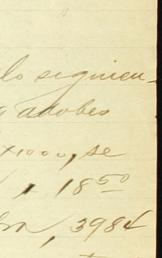 lo siguien-
adobes
x1000, se
18.50
3984